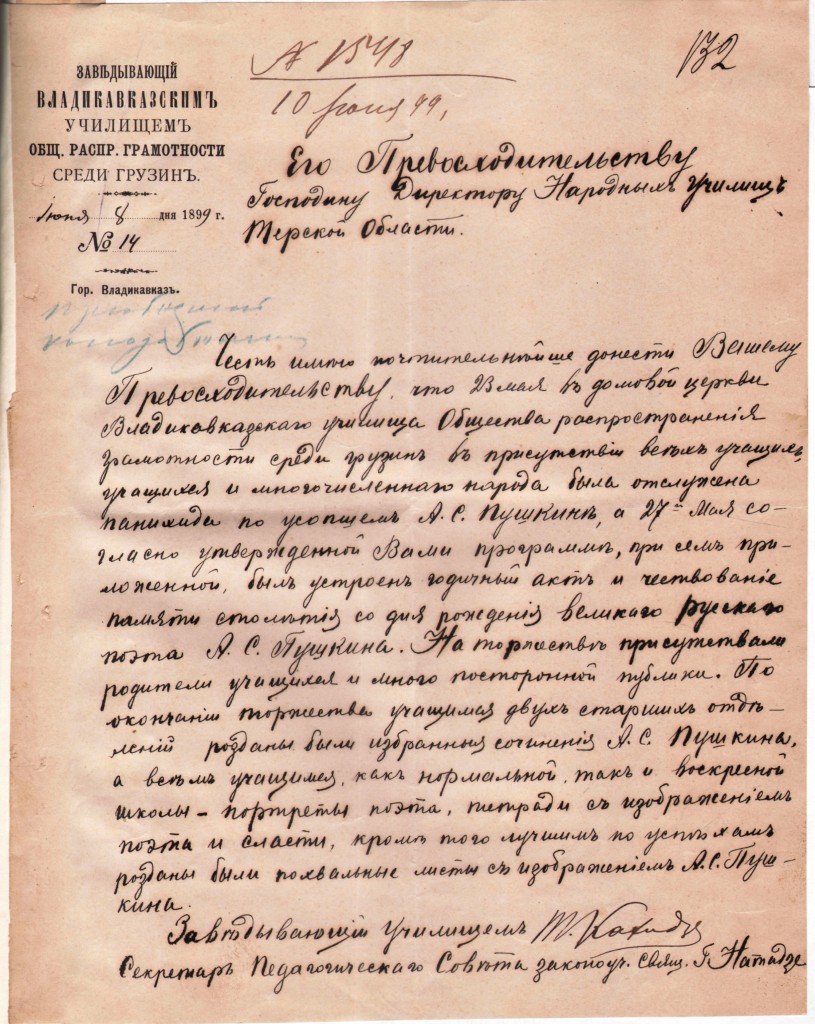 № 1548
132
10 Іюня 99,
ЗАВѢДЫВАЮЩІЙ
ВЛАДИКАВКАЗСКИМЪ
УЧИЛИЩЕМЪ
ОБЩ. РАСПР. ГРАМОТНОСТИ
СРЕДИ ГРУЗИНЪ.
Іюня 8 дня 1899 г.
№ 14
Гор. Владикавказъ.
Его Превосходительству
Господину Директору Народныхъ Училищъ
Терской Области.
Честь имѣю почтительнѣйше донести Вашему
Превосходительству, что 23 мая въ домовой церкви
Владикавказскаго училища Общества распространенія
грамотности среди грузинъ въ присутствіи всѣхъ учащихъ,
учащихся и многочисленнаго народа была отслужена
панихида по усопшемъ А. С. Пушкинѣ, а 27го Мая со-
гласно утвержденной Вами программѣ, при семъ при-
ложенной, былъ устроенъ годичный актъ и чествованіе
памяти столѣтія со дня рожденія великаго русскаго
поэта А. С. Пушкина. На торжествѣ присутствали
родители учащихся и много посторонной публики. По
окончаніи торжества учащимся двухъ старшихъ отдѣ-
леній розданы были избранныя сочиненія А. С. Пушкина,
а всѣмъ учащимся, какъ нормальной, такъ и воскресной
школы – портреты поэта, тетради съ изображеніемъ
поэта и сласти, кромѣ того лучшимъ по успѣхамъ
розданы были похвальные листы съ изображеніемъ А. С. Пуш-
кина.
Завѣдывающій училищемъ
Секретарь Педагогическаго Совѣта законоуч. свящ. Г. Натадзе